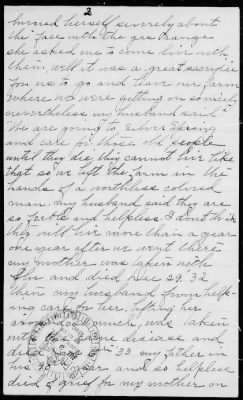 2
burned herself severely about
the face with the gas range
she asked me to come live with
them, well it was a great sacrifice
for us to go and leave our farm
where we were getting on so nicely
nevertheless my husband said
We are going to Silver Spring
and care for those old people
until they die, they cannot live like
that so we left the farm in the
hands of a worthless colored
man. my husband said they are
so feeble and helpless I don't think
they will live more than a year
one year after we went there
my mother was taken with
flu and died Dec 29, 32
then my husband from help-
ing care for her, lifting her
around so much, was taken
with the same disease and
died 33 my father in
his and so helpless
died of grief for my mother on